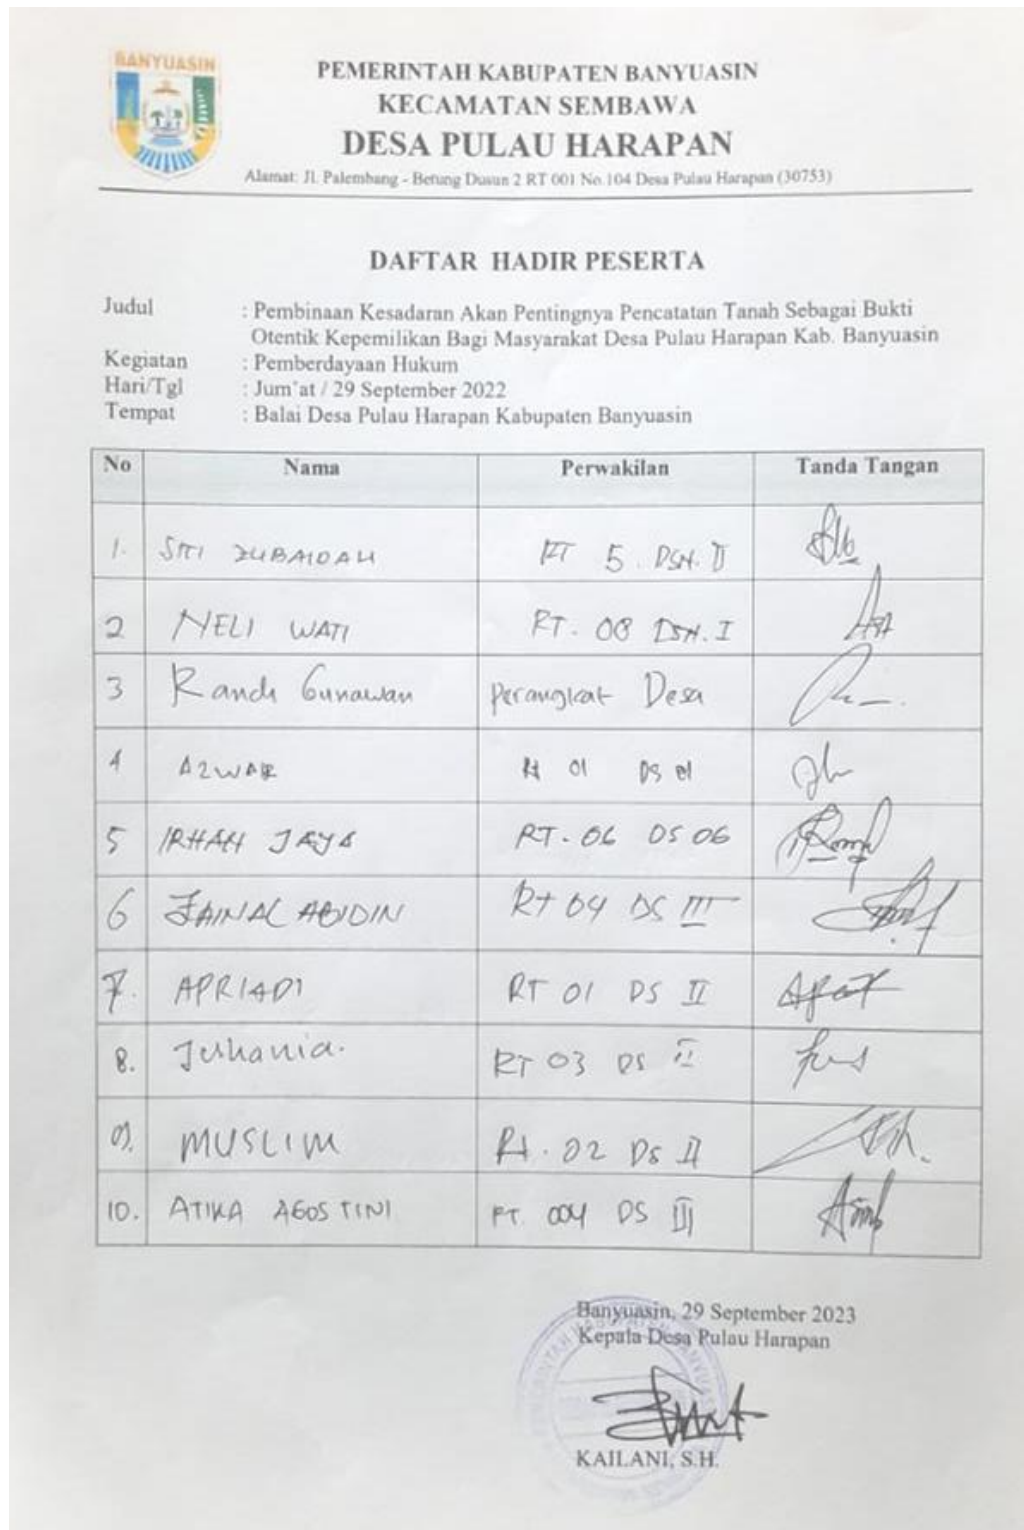 BANYUASIN
PEMERINTAH KABUPATEN BANYUASIN
KECAMATAN SEMBAWA
DESA PULAU HARAPAN
Alamat: Jl. Palembang - Betung Dusun 2 RT 001 No.104 Desa Pulau Harapan (30753)
DAFTAR HADIR PESERTA
Judul : Pembinaan Kesadaran Akan Pentingnya Pencatatan Tanah Sebagai Bukti
Otentik Kepemilikan Bagi Masyarakat Desa Pulau Harapan Kab. Banyuasin
Kegiatan : Pemberdayaan Hukum
Hari/Tgl : Jum'at / 29 September 2022
Tempat : Balai Desa Pulau Harapan Kabupaten Banyuasin
No Nama Perwakilan Tanda Tangan
1. SITI ZUBAIDAH RT 5. DSN. II
2 NELI WATI RT. 08 DSN. I
3 Randi Gunawan Perangkat Desa
4 AZWAR Rt 01 DS 01
5 IRHAN JAYA RT. 06 DS 06
6 ZAINAL ABIDIN Rt 04 DS III
7. APRIADI RT 01 DS II
8. RT 03 DS II
09. MUSLIM Rt. 02 DS II
10. ATIKA AGOSTINI RT. 004 DS III
Banyuasin, 29 September 2023
Kepala Desa Pulau Harapan
KAILANI, S.H.